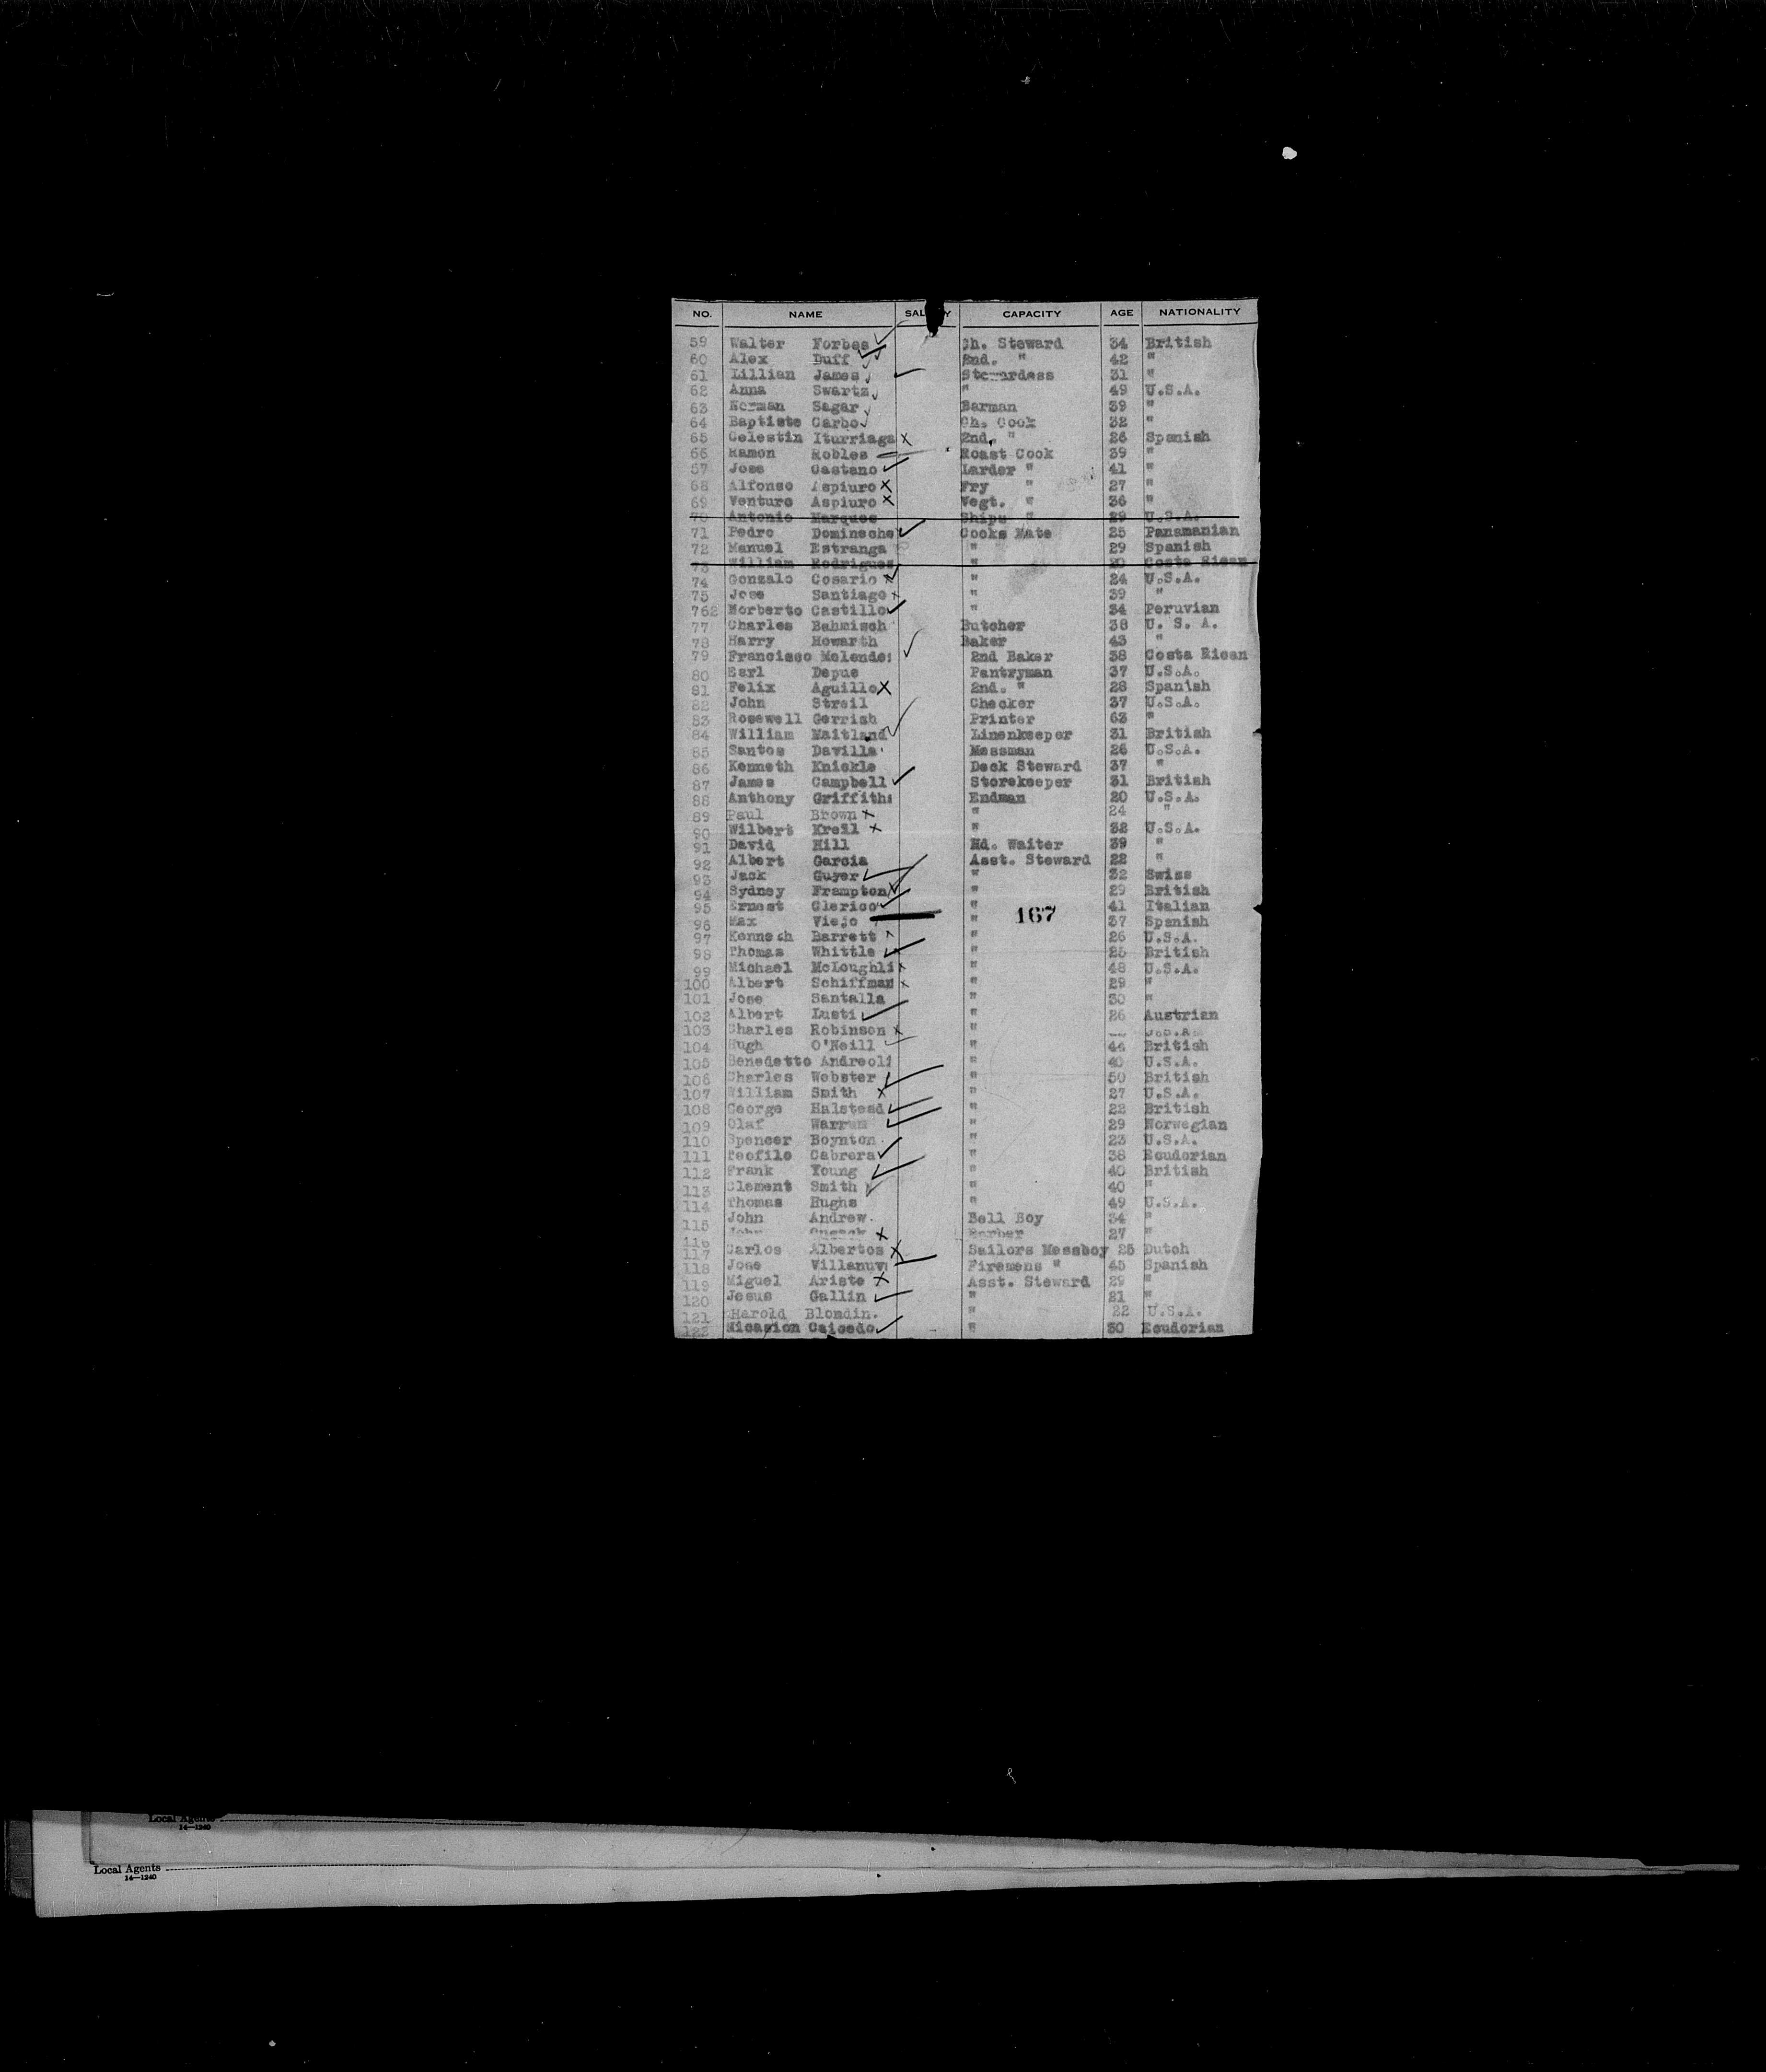 NO. NAME SAL Y CAPACITY AGE NATIONALITY
59 Walter Forbes Ch. Steward 34 British
60 Alex Duff 2nd. " 42 "
61 Lillian James Stewardess 31 "
62 Anna Swartz " 49 U.S.A.
63 Herman Sagar Barman 39 "
64 Baptiste Carbo Ch. Cook 32 "
65 Celestin Iturriaga 2nd. " 26 Spanish
66 Ramon Robles Roast Cook 39 "
67 Jose Castano Larder " 41 "
68 Alfonso Aspiuro Fry " 27 "
69 Venturo Aspiuro Vegt. " 36 "
70 Antonio Marques Ships " 29 U.S.A.
71 Pedro Domineche Cooks Mate 25 Panamanian
72 Manuel Estranga " 29 Spanish
73 William Rodrigues " 20 Costa Rican
74 Gonzalo Cosario " 24 U.S.A.
75 Jose Santiago " 39 "
762 Norberto Castillo " 34 Peruvian
77 Charles Bahmisch Butcher 38 U. S. A.
78 Harry Howarth Baker 43 "
79 Francisco Melendez 2nd Baker 38 Costa Rican
80 Earl Depue Pantryman 37 U.S.A.
81 Felix Aguillo 2nd. " 28 Spanish
82 John Streil Checker 37 U.S.A.
83 Rosewell Gerrish Printer 63 "
84 William Maitland Linenkeeper 31 British
85 Santos Davilla Messman 26 U.S.A.
86 Kenneth Knickle Deck Steward 37 "
87 James Campbell Storekeeper 31 British
88 Anthony Griffiths Endman 20 U.S.A.
89 Paul Brown " 24 "
90 Wilbert Kreil " 32 U.S.A.
91 David Hill Hd. Waiter 39 "
92 Albert Garcia Asst. Steward 22 "
93 Jack Guyer " 32 Swiss
94 Sydney Frampton " 29 British
95 Ernest Clerico " 41 Italian
96 Max Viejo " 167 37 Spanish
97 Kenneth Barrett " 26 U.S.A.
98 Thomas Whittle " 25 British
99 Michael McLoughli " 48 U.S.A.
100 Albert Schiffman " 29 "
101 Jose Santalla " 30 "
102 Albert Lusti " 26 Austrian
103 Charles Robinson "
104 Hugh O'Neill " 44 British
105 Benedetto Andreoli " 40 U.S.A.
106 Charles Webster " 50 British
107 William Smith " 27 U.S.A.
108 George Halstead " 22 British
109 Olaf Warrum " 29 Norwegian
110 Spencer Boynton " 23 U.S.A.
111 Teofilo Cabrera " 38 Ecudorian
112 Frank Young " 40 British
113 Clement Smith " 40 "
114 Thomas Hughs " 49 U.S.A.
115 John Andrew. Bell Boy 34 "
116 John Cusack Barber 27 "
117 Carlos Albertos Sailors Messboy 25 Dutch
118 Jose Villanuv Firemens " 45 Spanish
119 Miguel Ariste Asst. Steward 29 "
120 Jesus Gallin " 21 "
121 Harold Blondin. " 22 U.S.A.
122 Nicasion Caicedo " 30 Ecudorian
Local Agents
14—1240
Local Agents
14—1240